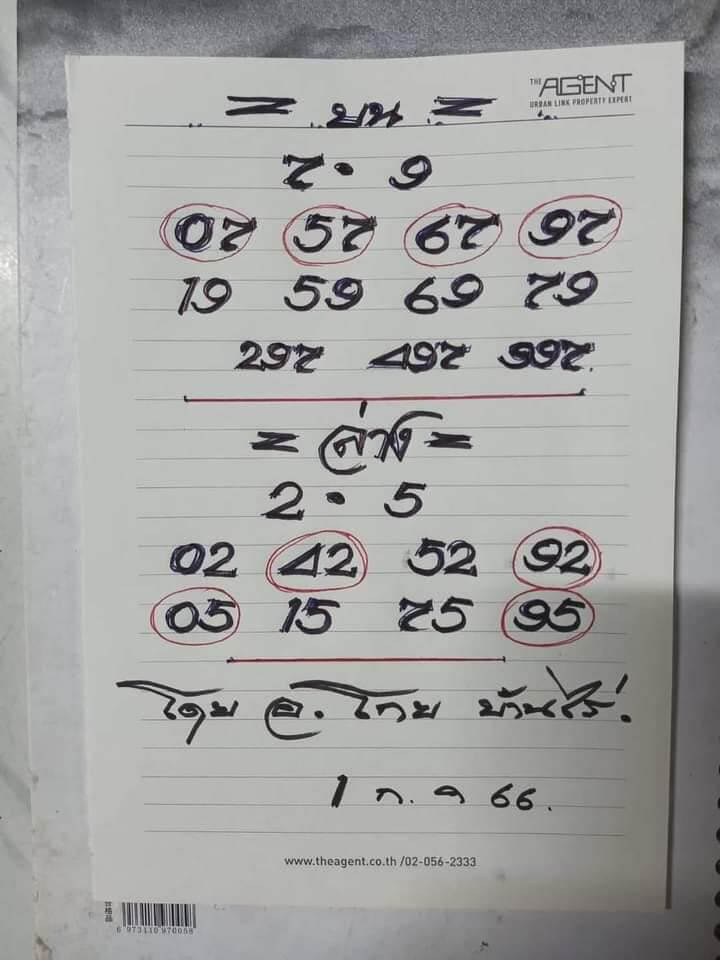 THE AGENT
URBAN LINK PROPERTY EXPERT
= บน =
7 • 9
07 57 67 97
19 59 69 79
297 497 997
= ล่าง =
2 • 5
02 42 52 92
05 15 75 95
โดย อ. ไทย บ้านไร่.
1 ก. ค 66.
www.theagent.co.th /02-056-2333
合格品
6 973110 970058